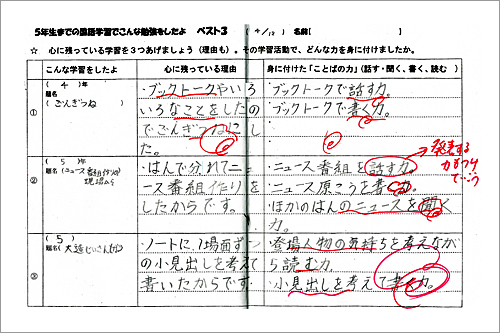 5年生までの国語学習でこんな勉強をしたよ　ベスト3　（ 4/12 ）　名前［　　　］
☆ 心に残っている学習を3つあげましょう（理由も）。その学習活動で、どんな力を身に付けましたか。
こんな学習をしたよ
心に残っている理由
身に付けた「ことばの力」（話す・聞く、書く、読む　）
①
（ 4 ）年
題名
（ごんぎつね　）
・ブックトークやいろ
いろなことをしたの
でごんぎつねにし
た。
・ブックトークで話す力。
・ブックトークで書く力。
②
（ 5 ）年
題名（ニュース番組作りの
現場から
・はんで分れてニュ
ース番組作りを
したからです。
・ニュース番組を話す力。
・ニュース原こうを書く力。
・ほかのはんのニュースを聞く
力。
発表する
力もつけ
③
（ 5 ）
題名（大造じいさんとガン）
・ノートに、1場面ずつ
の小見出しを考えて
書いたからです。
・登場人物の気持ちを考えなが
ら読む力。
・小見出しを考えて書く力。